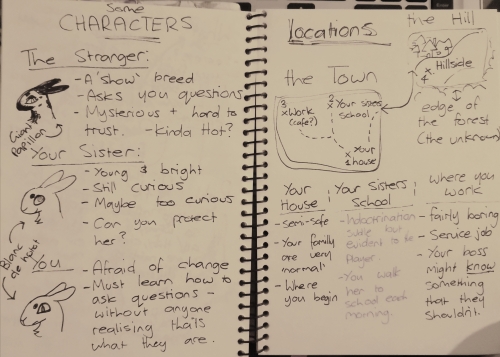 Some
CHARACTERS
The Stranger:
- A 'show' breed
- Asks you questions
- Mysterious + hard to
trust. - Kinda Hot?
Giant
Papillon
Your Sister:
- Young & bright
- Still curious
- Maybe too curious
- Can you protect
her?
Blanc
de hotot
You
- Afraid of change
- Must learn how to
ask questions -
without anyone
realising thats
what they are.
locations
the Hill
4
x
Hillside
edge of
the forest
(the unknown)
the Town
3
x Work
(cafe?)
2
x Your sisters
school
x Your
1 house
Your
House
- semi-safe
- Your family
are very
'normal'
- Where
you begin
Your Sisters
School
- Indoctrination
subtle but
evident to the
Player
- You walk
her to
school each
morning.
where you
work
- fairly boring
- Service job
- Your boss
might know
something
that they
shouldn't.